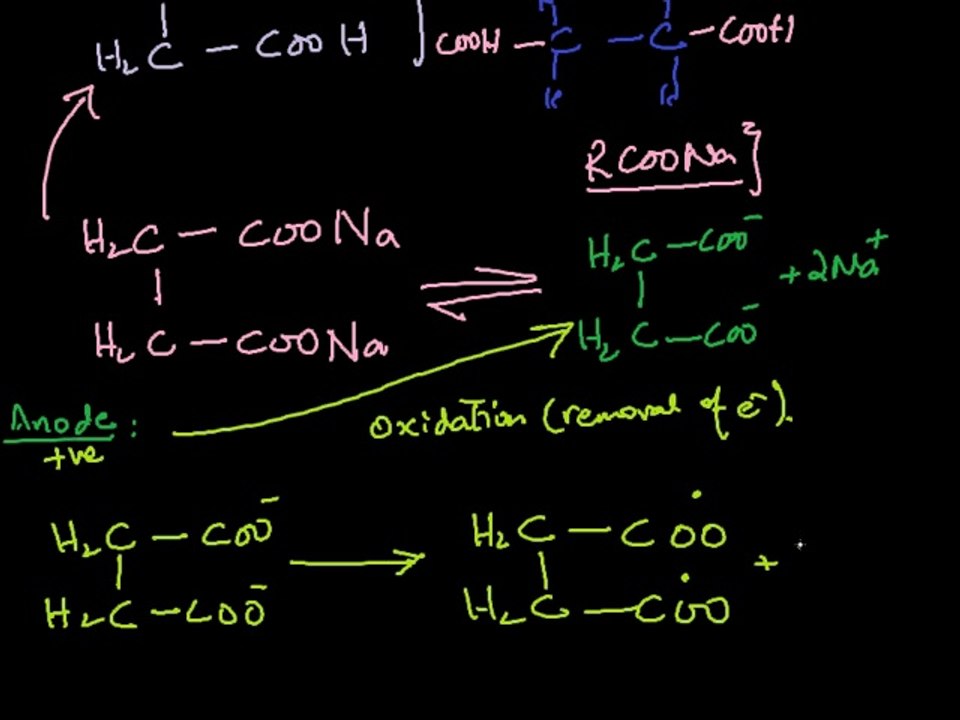 H₂C — COOH ] COOH — C — C — COOH
H H
RCOONa ]
H₂C — COONa
H₂C — COO⁻
+ 2Na⁺
H₂C — COONa
H₂C — COO⁻
Anode :
+ve
Oxidation (removal of e⁻).
H₂C — COO⁻
H₂C — COO⁻
H₂C — COȮ
H₂C — COȮ
+